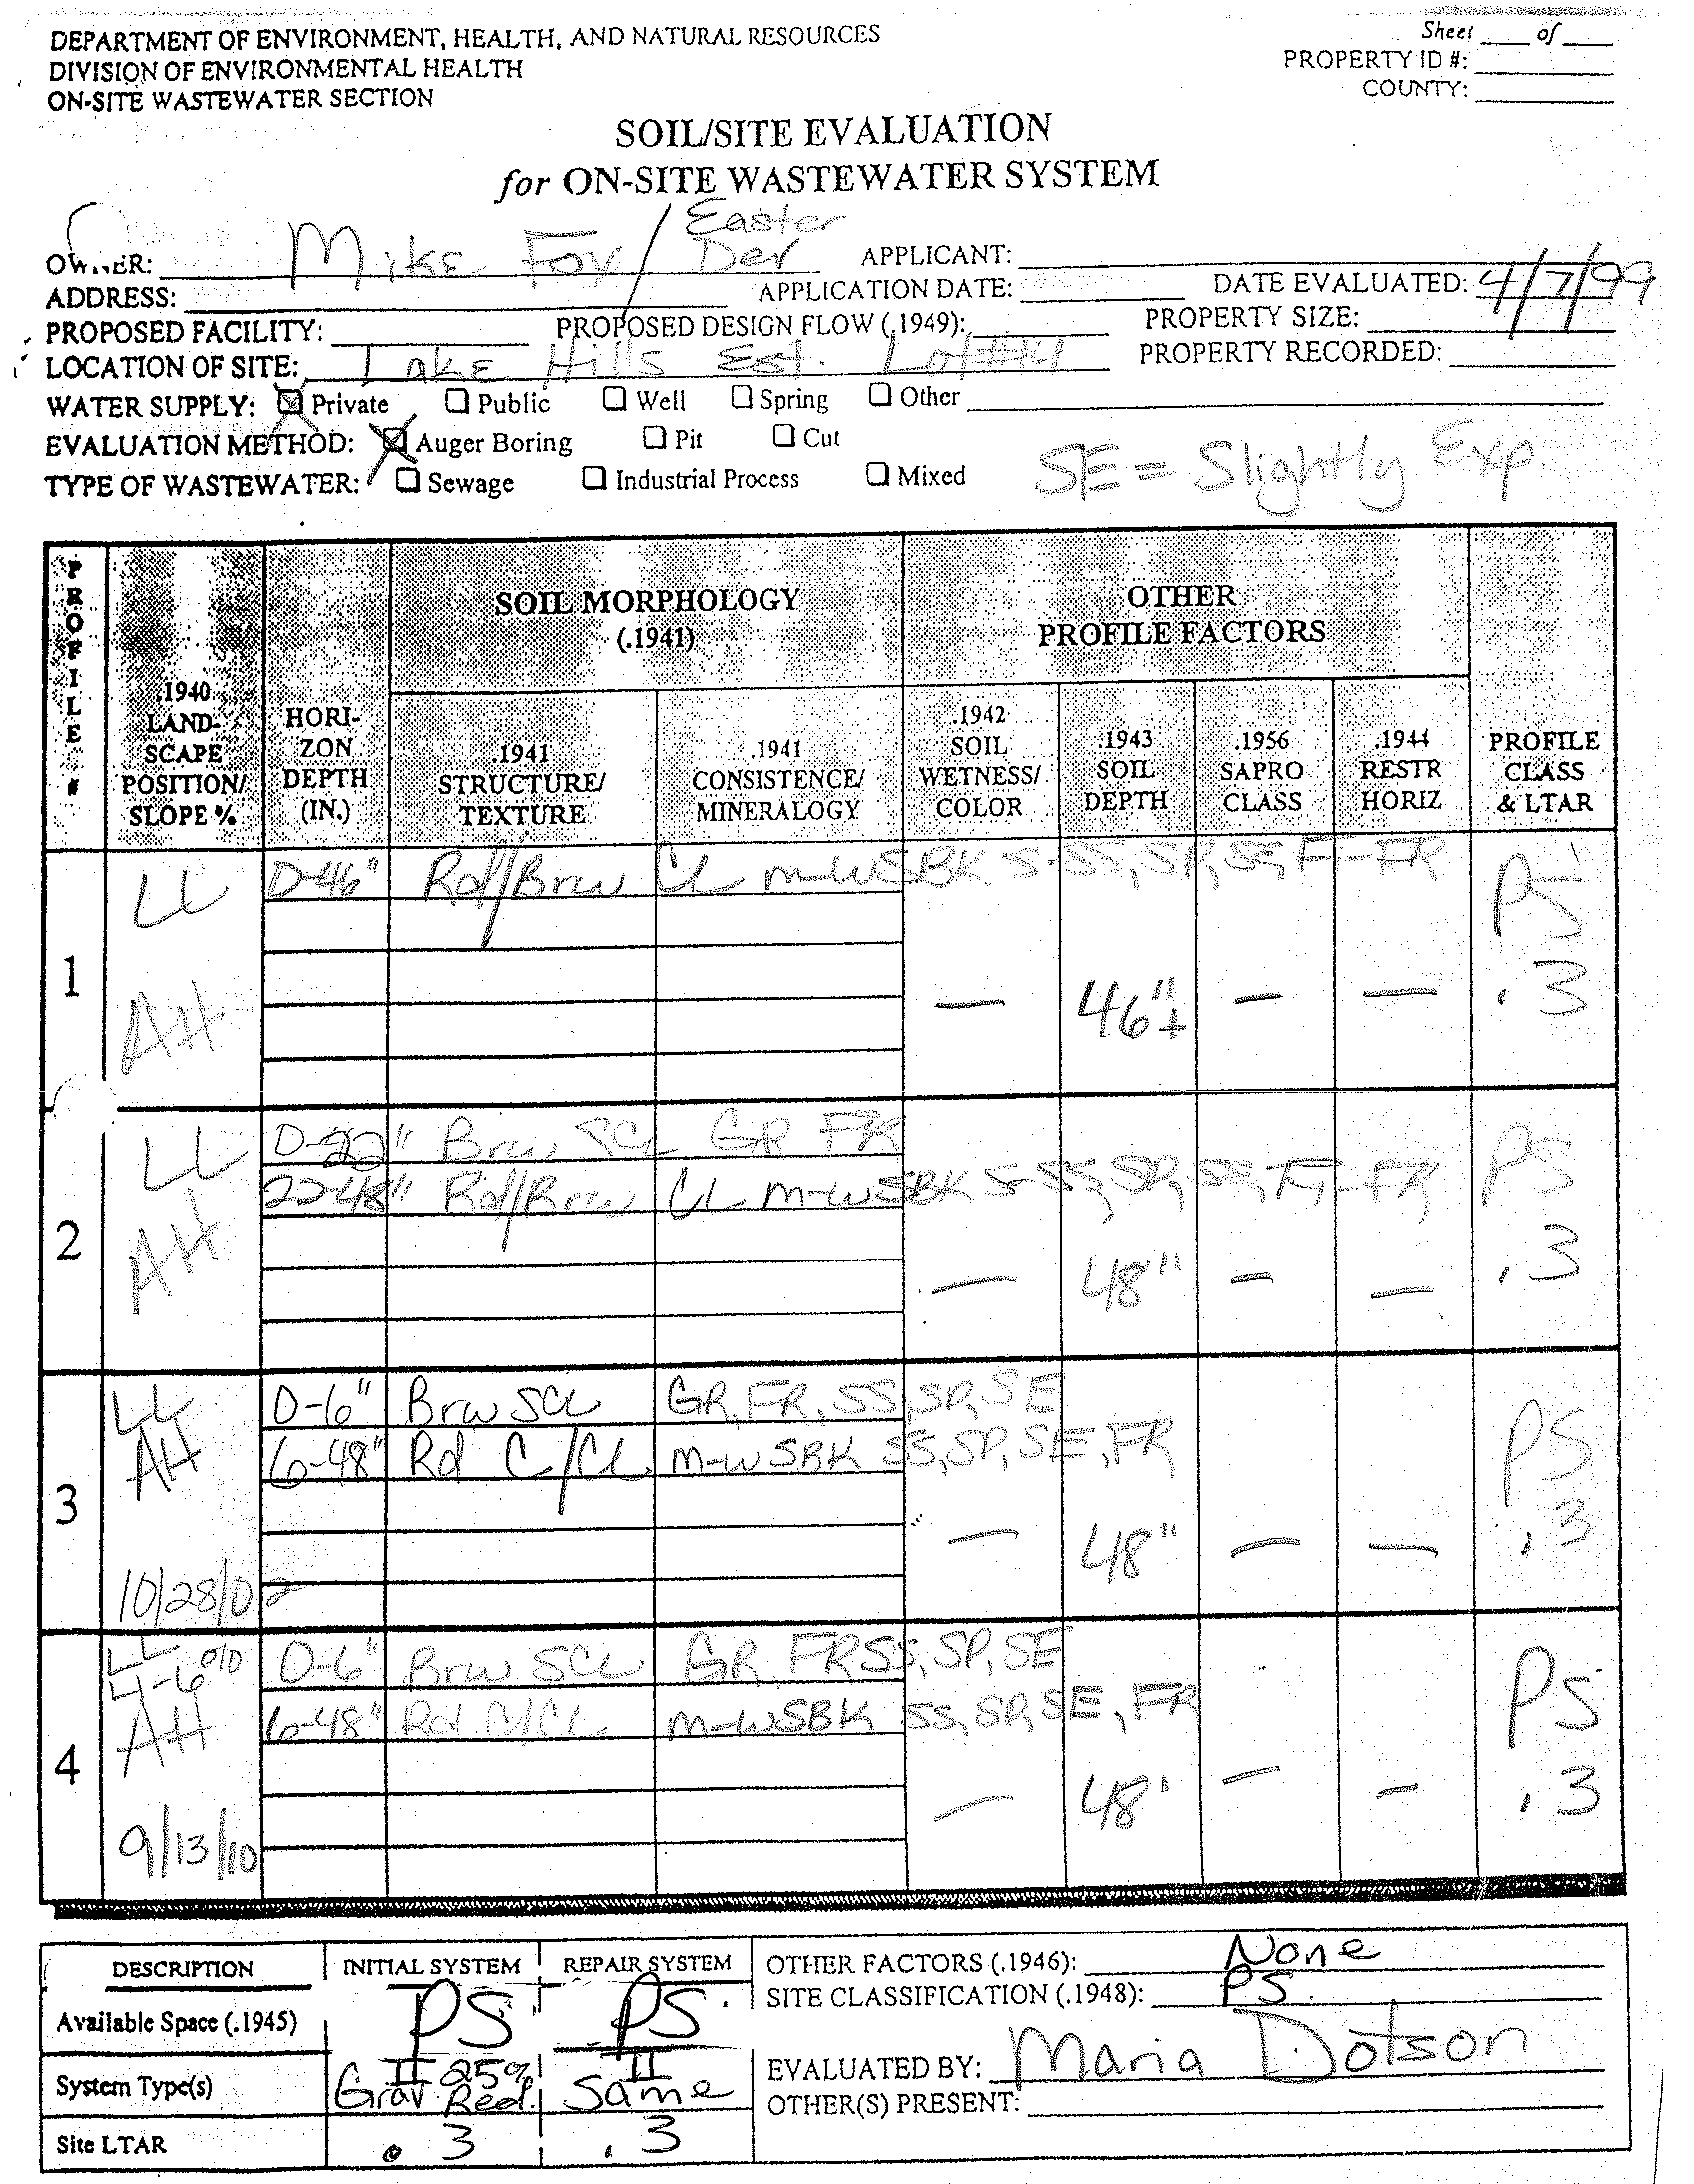 DEPARTMENT OF ENVIRONMENT, HEALTH, AND NATURAL RESOURCES
DIVISION OF ENVIRONMENTAL HEALTH
ON-SITE WASTEWATER SECTION
Sheet ___ of ___
PROPERTY ID #:
COUNTY:
SOIL/SITE EVALUATION
for ON-SITE WASTEWATER SYSTEM
OWNER: Mike Fox / Easter Dev APPLICANT:
ADDRESS: APPLICATION DATE: DATE EVALUATED: 4/7/99
PROPOSED FACILITY: PROPOSED DESIGN FLOW (.1949): PROPERTY SIZE:
LOCATION OF SITE: Lake Hills Est. PROPERTY RECORDED:
WATER SUPPLY: ☒ Private ☐ Public ☐ Well ☐ Spring ☐ Other
EVALUATION METHOD: ☒ Auger Boring ☐ Pit ☐ Cut
TYPE OF WASTEWATER: ☐ Sewage ☐ Industrial Process ☐ Mixed
SE = Slightly Exp
PROFILE #
.1940 LAND-SCAPE POSITION/ SLOPE %
HORI-ZON DEPTH (IN.)
SOIL MORPHOLOGY (.1941)
.1941 STRUCTURE/ TEXTURE
.1941 CONSISTENCE/ MINERALOGY
OTHER PROFILE FACTORS
.1942 SOIL WETNESS/ COLOR
.1943 SOIL DEPTH
.1956 SAPRO CLASS
.1944 RESTR HORIZ
PROFILE CLASS & LTAR
1 LL 0-46" Rd/Brw CL m-wSBK S-SS, SP, SE, FI-FR PS
AH — 46"+ — — .3
2 LL 0-22" Brw SCL GR FR PS
22-48" Rd/Brw CL m-wSBK S-SS, SP, SE, FI-FR
AH — 48" — — .3
3 LL 0-6" Brw SCL GR, FR, SS, SP, SE PS
AH 6-48" Rd C/CL m-wSBK SS, SP, SE, FR
— 48" — — .3
10/28/02
4 LL 0-6" Brw SCL GR FR SS, SP, SE PS
4-6%
AH 6-48" Rd C/CL m-wSBK SS, SP, SE, FR
— 48" — — .3
9/13/10
DESCRIPTION INITIAL SYSTEM REPAIR SYSTEM
Available Space (.1945) PS PS
System Type(s) II 25% Grav Red. II Same
Site LTAR .3 .3
OTHER FACTORS (.1946): None
SITE CLASSIFICATION (.1948): PS
EVALUATED BY: Maria Dotson
OTHER(S) PRESENT: